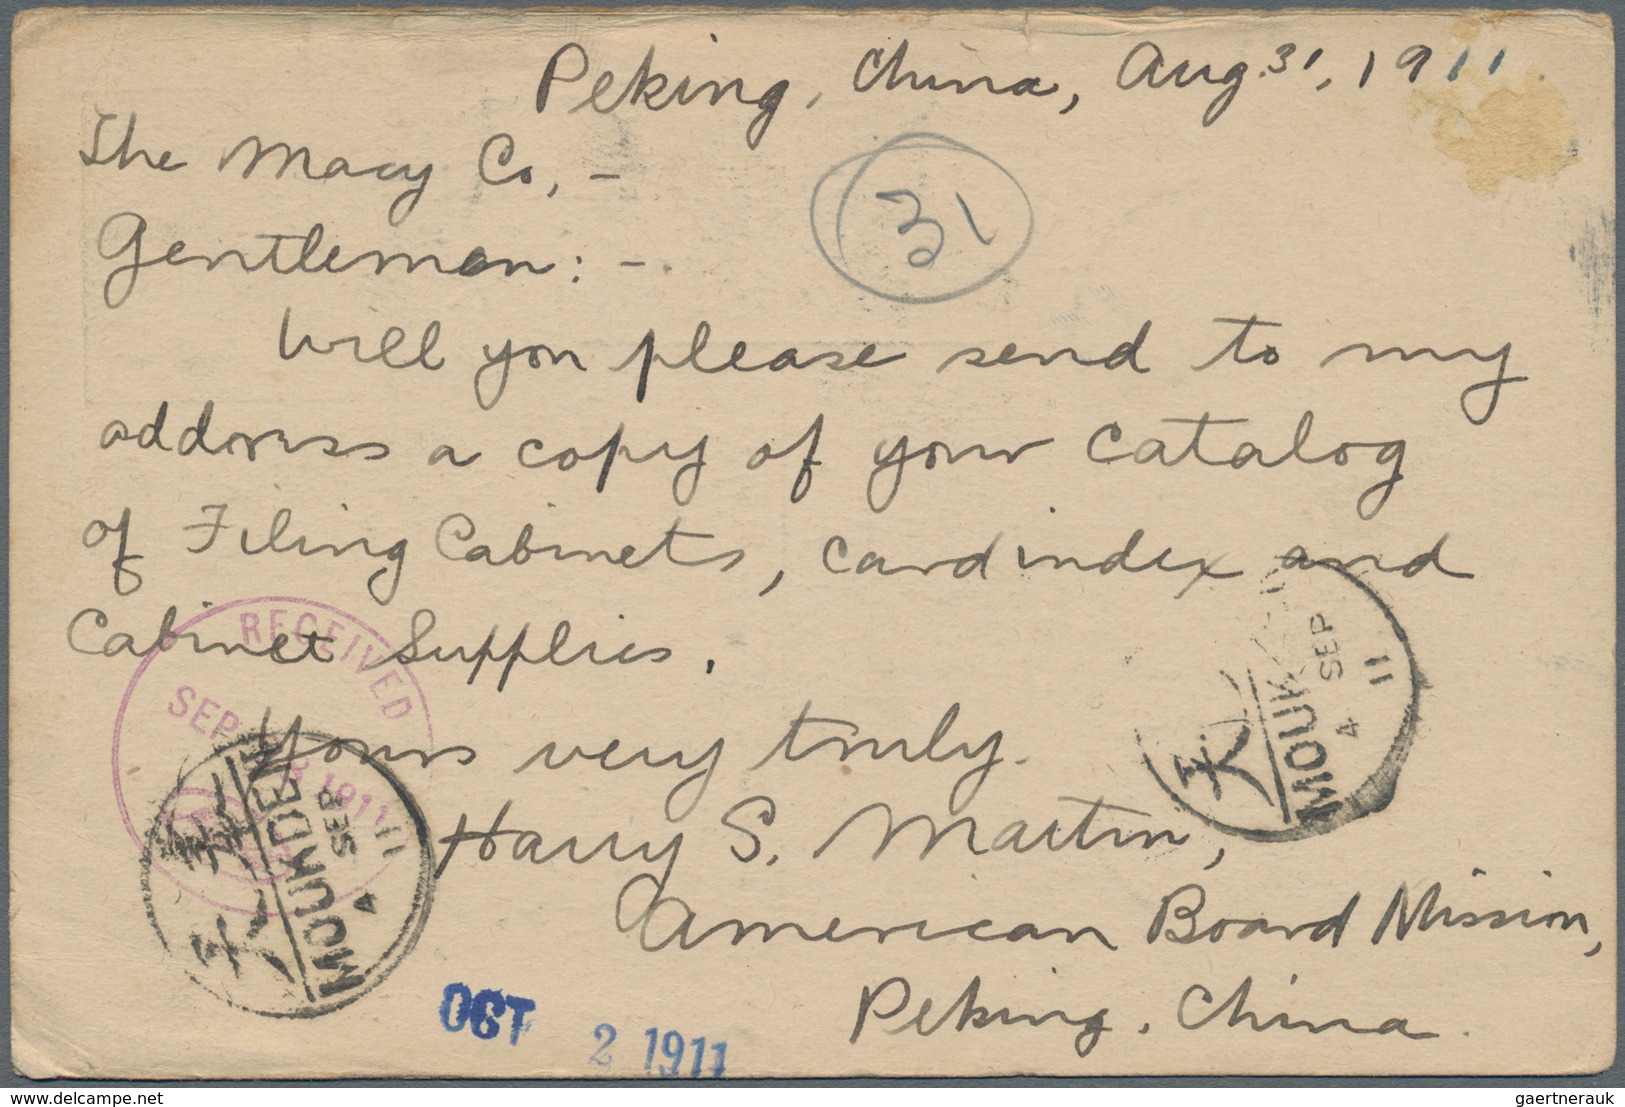 Peking, China, Aug. 31, 1911.
The Macy Co., –
31
Gentlemen: –.
Will you please send to my
address a copy of your catalog
of Filing Cabinets, card index and
Cabinet Supplies.
RECEIVED
SEP 1911
Yours very truly.
Harry S. Martin,
American Board Mission,
Peking, China.
MOUKDEN
4 SEP 11
MOUK
4 SEP 11
OCT 2 1911
www.delcampe.net
gaertnerauk